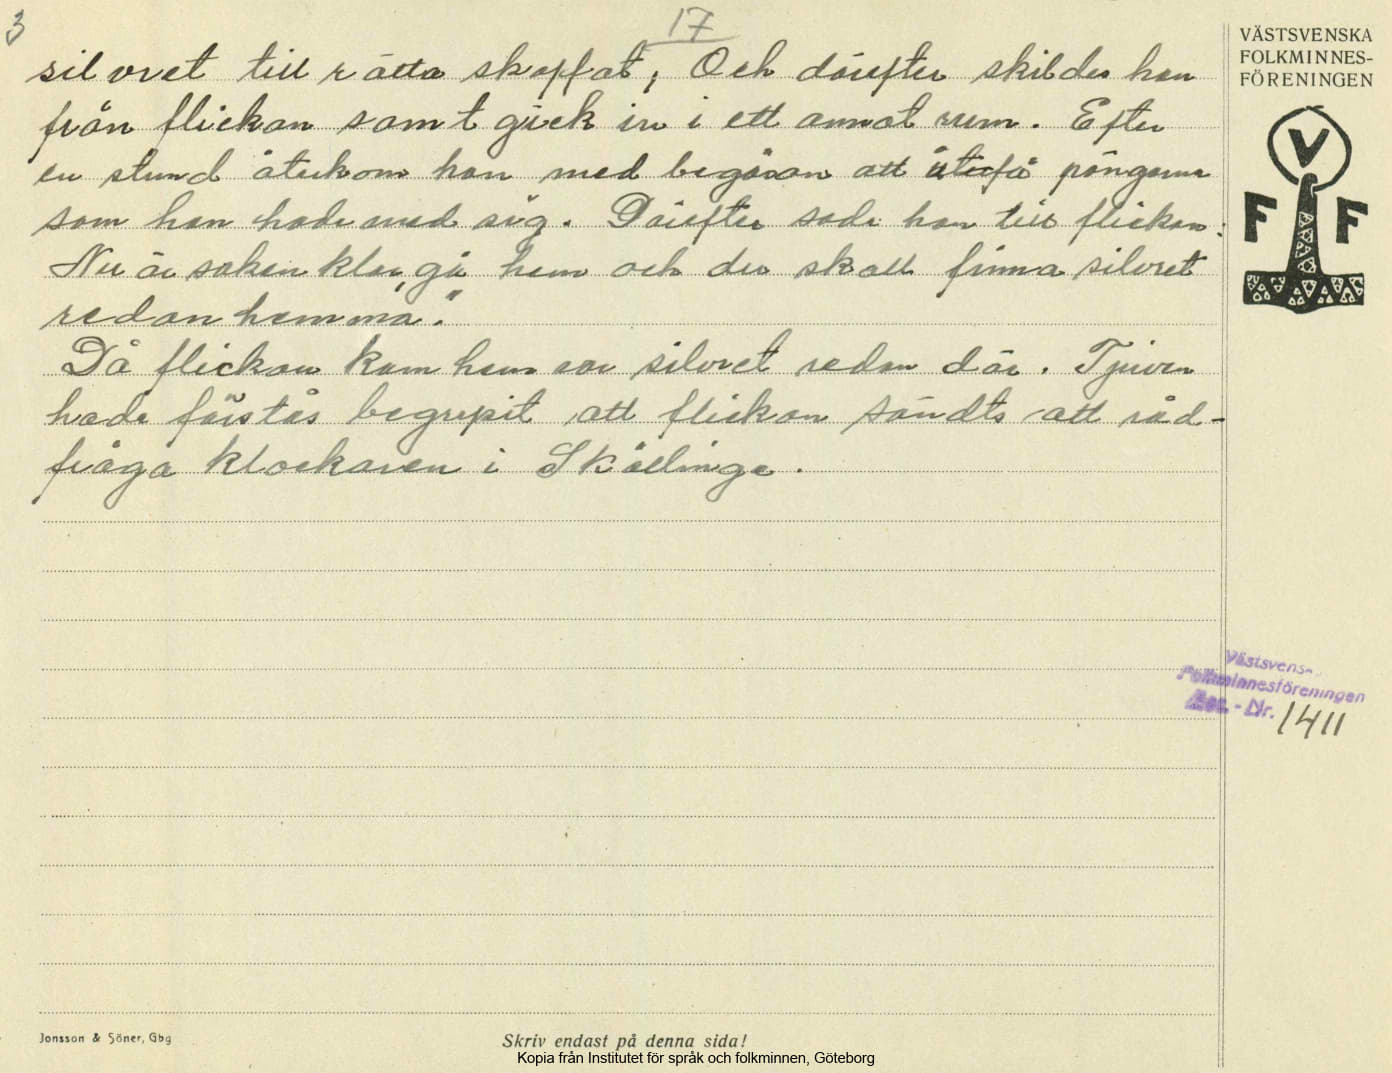 3
17
silvret till rätta skaffat, Och därefter skildes han
från flickan samt gick in i ett annat rum. Efter
en stund återkom han med begäran att återfå pängarna
som hon hade med sig. Därefter sade han till flickan:
Nu är saken klar, gå hem och du skall finna silvret
redan hemma".
Då flickan kom hem var silvret redan där. Tjuven
hade förstås begrepit att flickan sändts att råd-
fråga klockaren i Skällinge.
VÄSTSVENSKA
FOLKMINNES-
FÖRENINGEN
V
F F
Västsvens-
Folkminnesföreningen
Acc. - Nr. 1411
Jonsson & Söner, Gbg
Skriv endast på denna sida!
Kopia från Institutet för språk och folkminnen, Göteborg